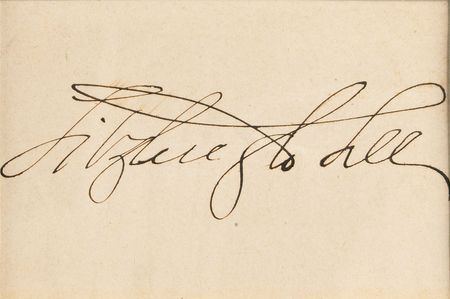 Fitzhugh Lee